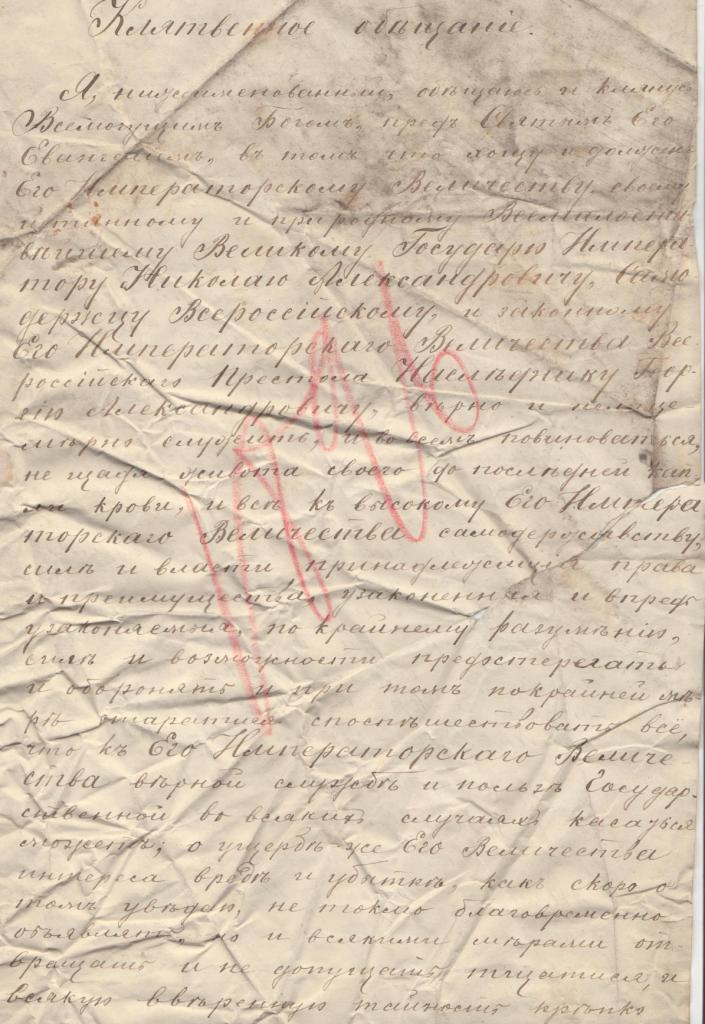 Клятвенное обѣщаніе.
Я, нижеименованный, обѣщаюсь и клянусь
Всемогущимъ Богомъ, предъ Святымъ Его
Евангеліемъ, въ томъ что хощу и долженъ
Его Императорскому Величеству, своему
истинному и природному Всемилости-
вѣйшему Великому Государю Импера-
тору Николаю Александровичу, Само
держцу Всероссійскому, и законному
Его Императорскаго Величества Все-
россійскаго Престола Наслѣднику Геор-
гію Александровичу, вѣрно и нелице-
мѣрно служить, и во всемъ повиноваться,
не щадя живота своего до послѣдней кап-
ли крови, и всѣ къ высокому Его Импера
торскаго Величества самодержавству,
силѣ и власти принадлежащія права
и преимущества, узаконенныя и впредь
узаконяемыя, по крайнему разумѣнію,
силѣ и возможности предостерегать
и оборонять и при томъ по крайней мѣ-
рѣ старатися споспѣшествовать всё,
что къ Его Императорскаго Величе-
ства вѣрной службѣ и пользѣ Государ-
ственной во всякихъ случаяхъ касаться
можетъ; о ущербѣ же Его Величества
интереса вредѣ и убыткѣ, какъ скоро о
томъ увѣдаю, не токмо благовременно
объявлять, но и всякими мѣрами от-
вращать и не допущать тщатися, и
всякую ввѣренную тайность крѣпко